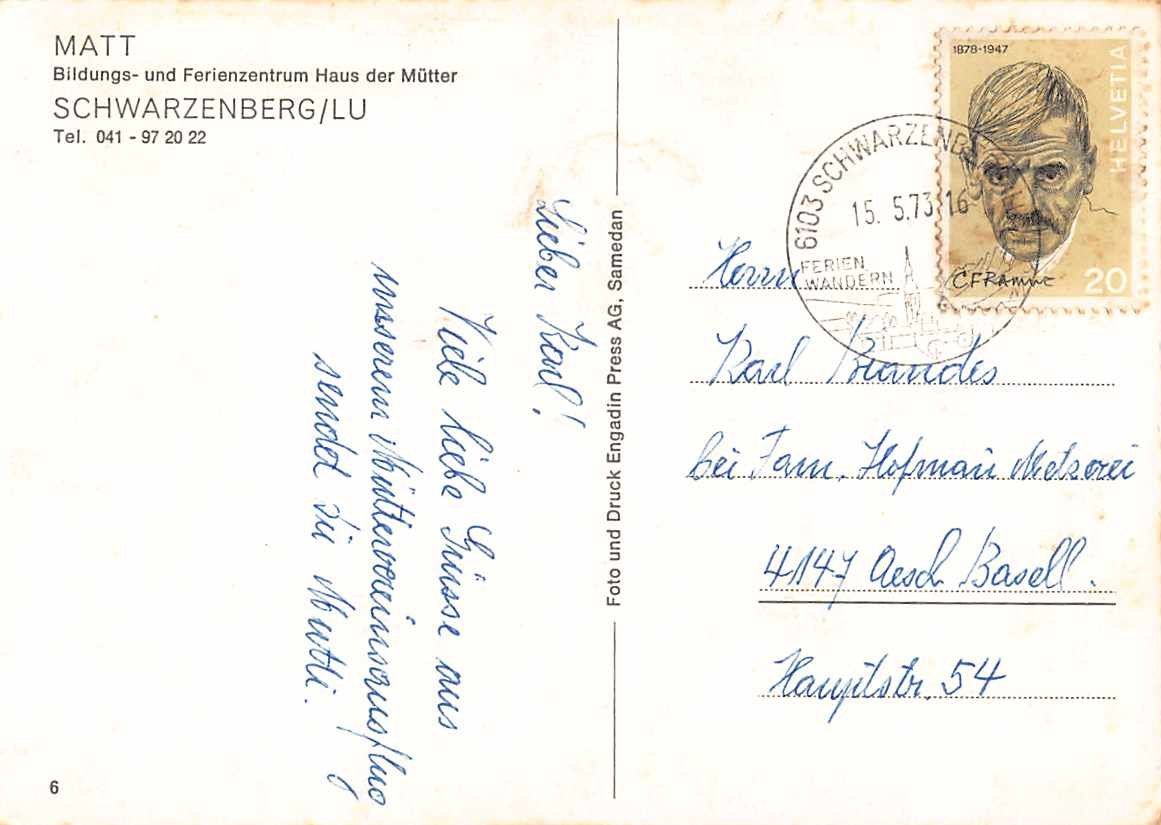 MATT
Bildungs- und Ferienzentrum Haus der Mütter
SCHWARZENBERG/LU
Tel. 041 - 97 20 22
Lieber Karl!
Viele liebe Grüsse aus
unserem Müttervereinsausflug
sendet Dir Mutti.
6
Foto und Druck Engadin Press AG, Samedan
1878-1947
HELVETIA
C F RAMUZ
20
6103 SCHWARZENBERG
15. 5.73 16
FERIEN
WANDERN
Herrn
Karl Brandes
bei Fam. Hofman Metzerei
4147 Aesch Basell.
Hauptstr. 54